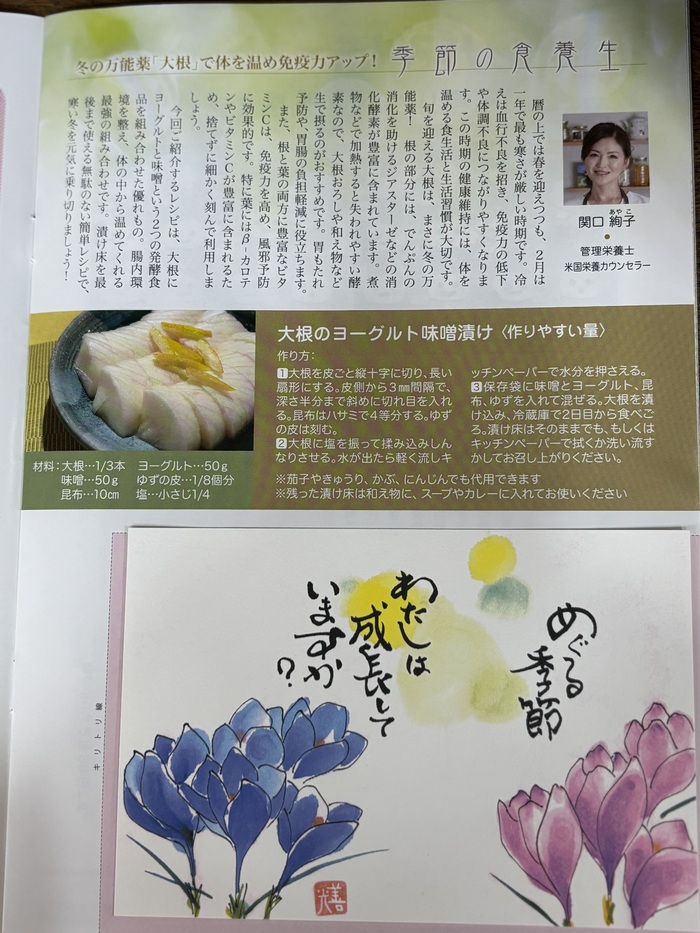 冬の万能薬「大根」で体を温め免疫力アップ！
季節の食養生
関口 絢子
あやこ
管理栄養士
米国栄養カウンセラー
暦の上では春を迎えつつも、2月は
一年で最も寒さが厳しい時期です。冷
えは血行不良を招き、免疫力の低下
や体調不良につながりやすくなりま
す。この時期の健康維持には、体を
温める食生活と生活習慣が大切です。
旬を迎える大根は、まさに冬の万
能薬！ 根の部分には、でんぷんの
消化を助けるジアスターゼなどの消
化酵素が豊富に含まれています。煮
物などで加熱すると失われやすい酵
素なので、大根おろしや和え物など
生で摂るのがおすすめです。胃もたれ
予防や、胃腸の負担軽減に役立ちます。
また、根と葉の両方に豊富なビタ
ミンCは、免疫力を高め、風邪予防
に効果的です。特に葉にはβ-カロテ
ンやビタミンCが豊富に含まれるた
め、捨てずに細かく刻んで利用しま
しょう。
今回ご紹介するレシピは、大根に
ヨーグルトと味噌という2つの発酵食
品を組み合わせた優れもの。腸内環
境を整え、体の中から温めてくれる
最強の組み合わせです。漬け床を最
後まで使える無駄のない簡単レシピで、
寒い冬を元気に乗り切りましょう！
大根のヨーグルト味噌漬け〈作りやすい量〉
作り方：
1大根を皮ごと縦十字に切り、長い
扇形にする。皮側から3㎜間隔で、
深さ半分まで斜めに切れ目を入れ
る。昆布はハサミで4等分する。ゆず
の皮は刻む。
2大根に塩を振って揉み込みしん
なりさせる。水が出たら軽く流しキ
ッチンペーパーで水分を押さえる。
3保存袋に味噌とヨーグルト、昆
布、ゆずを入れて混ぜる。大根を漬
け込み、冷蔵庫で2日目から食べご
ろ。漬け床はそのままでも、もしくは
キッチンペーパーで拭くか洗い流す
かしてお召し上がりください。
※茄子やきゅうり、かぶ、にんじんでも代用できます
※残った漬け床は和え物に、スープやカレーに入れてお使いください
材料：大根…1/3本 ヨーグルト…50g
味噌…50g ゆずの皮…1/8個分
昆布…10㎝ 塩…小さじ1/4
めぐる
季節
わたしは
成長して
いますか
？
キリトリ線